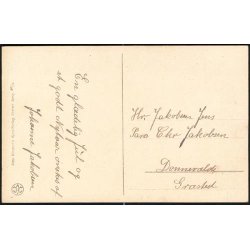 En glædelig Jul og
et godt Nytaar ønskes af
Johanne Jakobsen
Hr. Jakobsen Jens
Chr Jakobsen
Donnevælde
Græsted